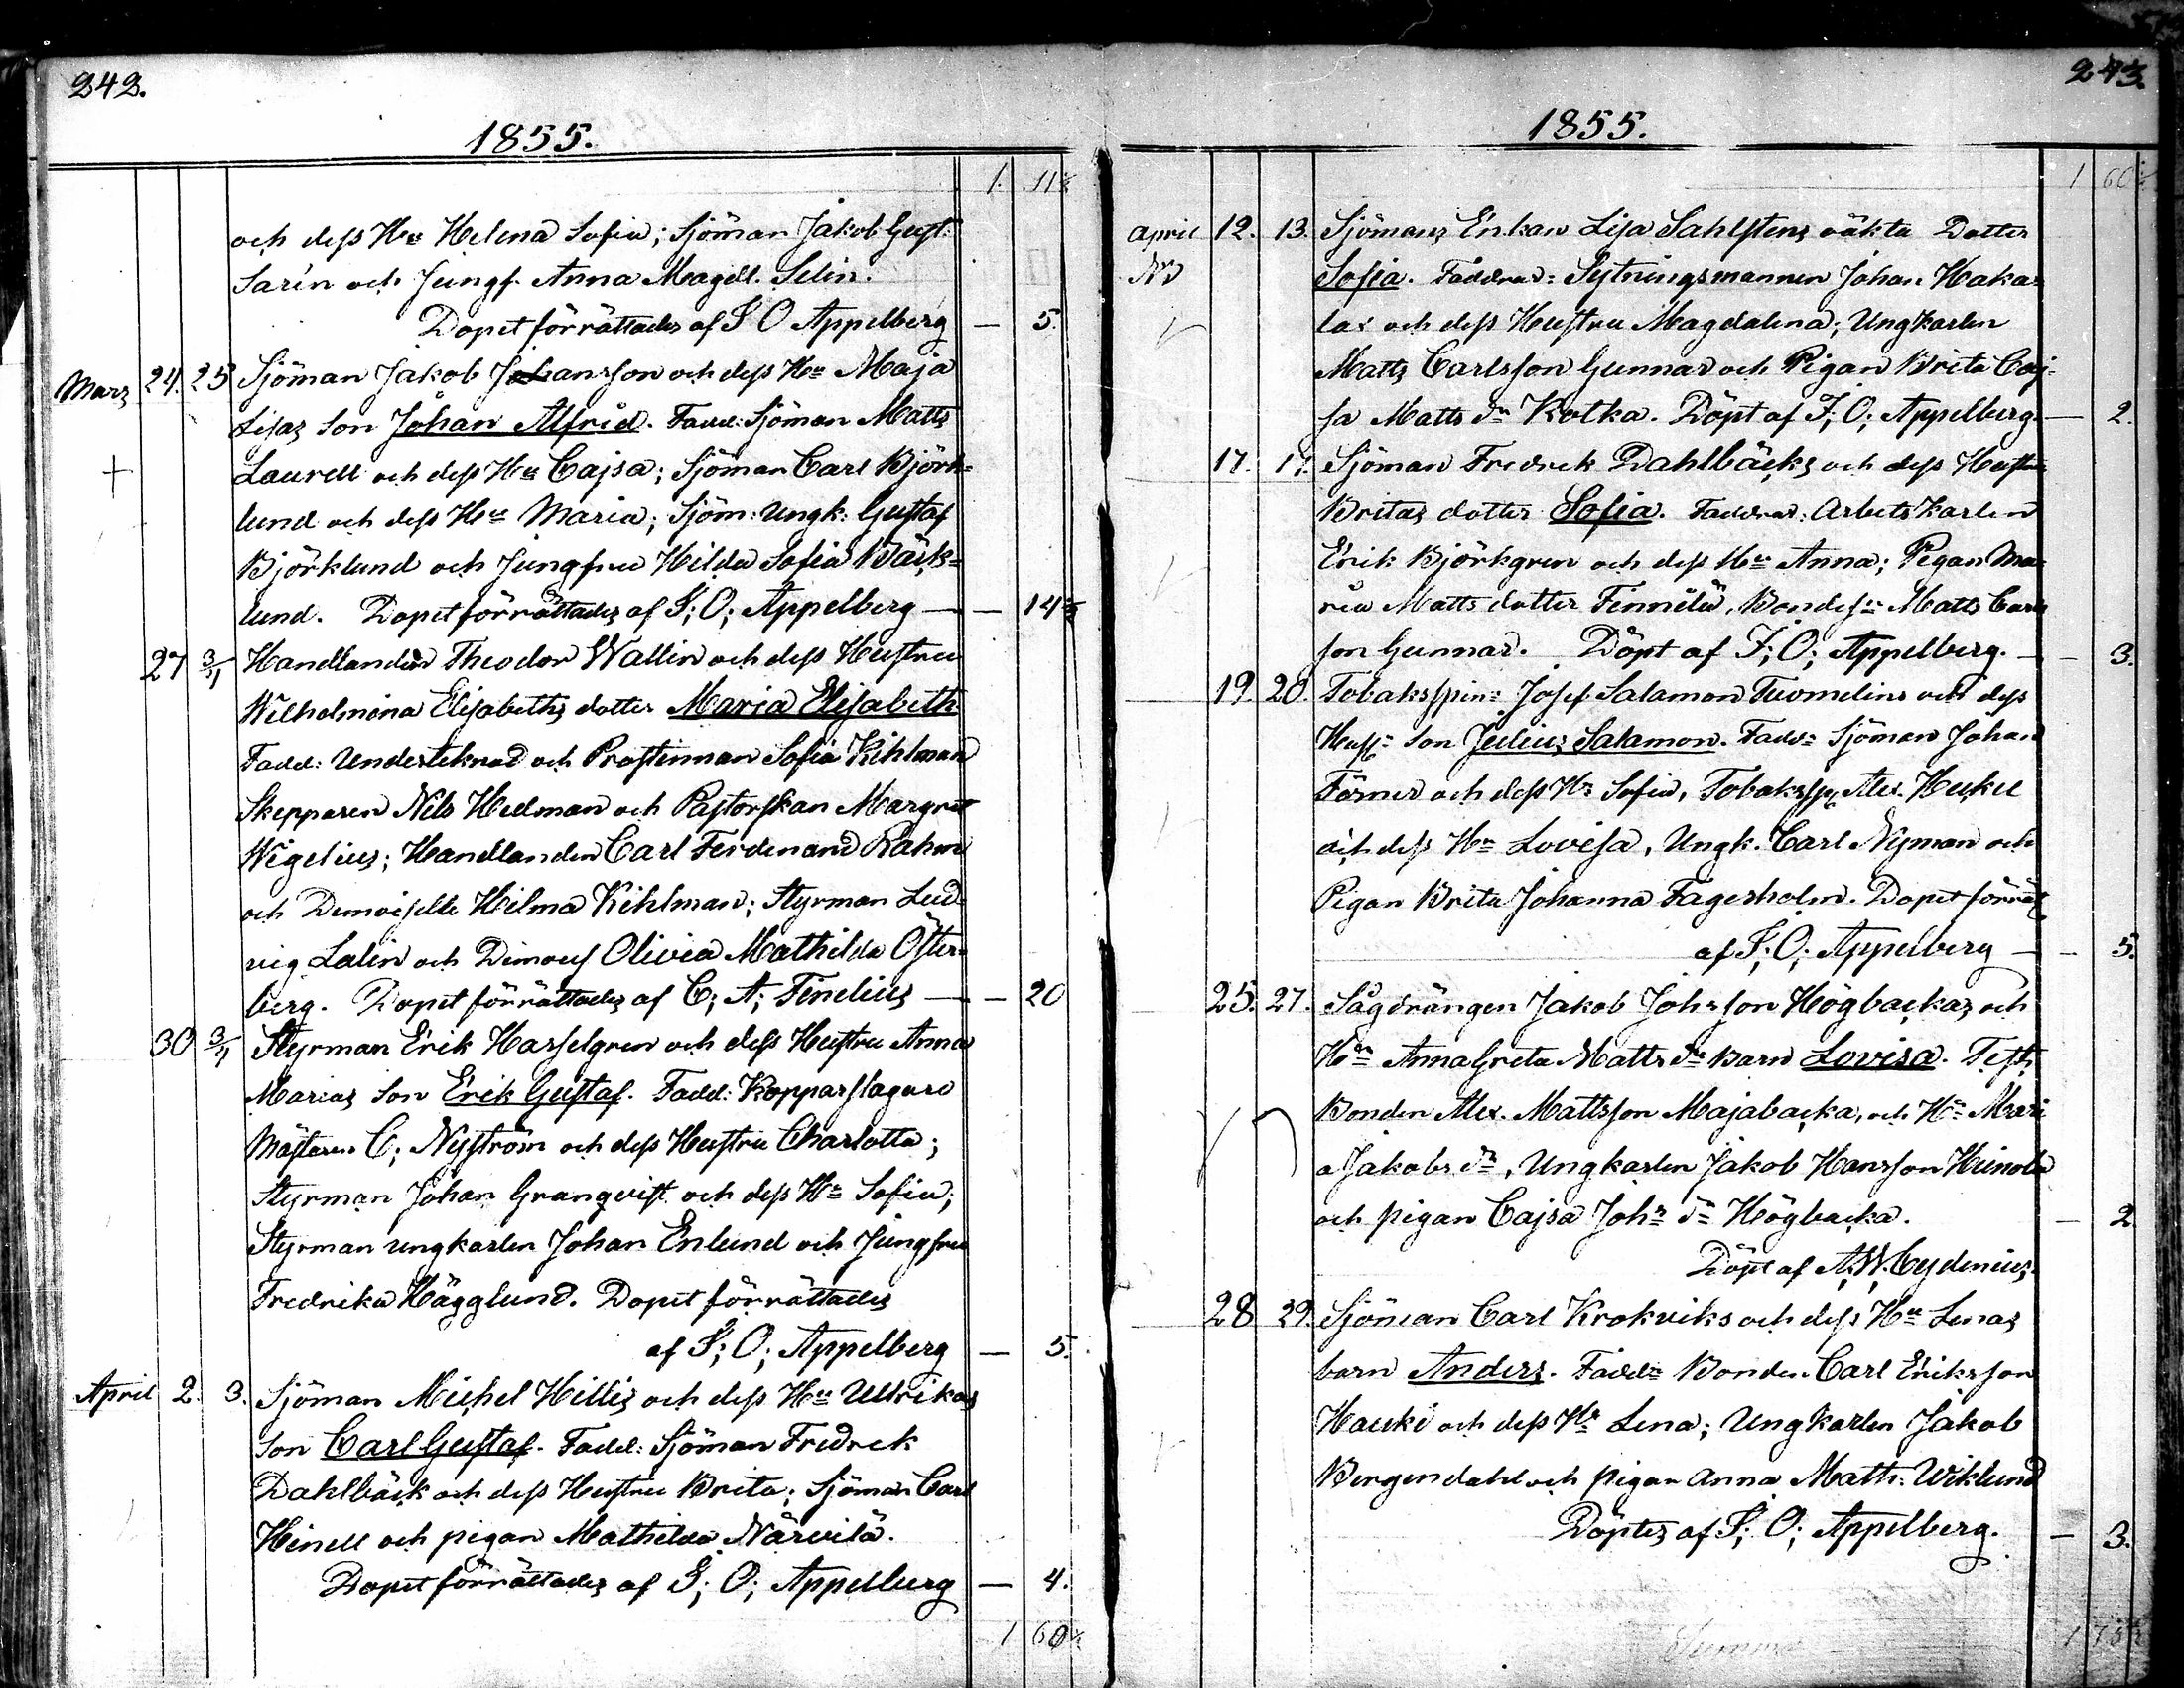 242.
1855.
1. 11½
och dess Hu Helena Sofia; Sjöman Jakob Gust.
Sarin och Jungf. Anna Magdl. Selin.
Dopet förrättades af S O Appelberg — 5.
Mars 24. 25 Sjöman Jakob Johansson och dess Hu Maja
Lisas Son Johan Alfrid. Fadd: Sjöman Matts
Laurell och dess Hu Cajsa; Sjöman Carl Björk-
lund och dess Hu Maria; Sjöm: Ungk: Gustaf
Björklund och Jungfru Hilda Sofia Bäck-
lund. Dopet förrättades af S; O; Appelberg — 14½
27 3/1 Handlanden Theodor Wallin och dess Hustru
Wilhelmina Elisabeths dotter Maria Elisabeth
Fadd: Underteknad och Prostinnan Sofia Kihlman
Skepparen Nils Hedman och Pastorskan Margret
Wigelius; Handlanden Carl Ferdinand Rahm
och Demoiselle Hilma Kihlman; Styrman Lud-
vig Lalin och Demois Olivia Mathilda Öster-
berg. Dopet förrättades af C; A; Finelius — 20
30 3/4 Styrman Erik Hasselgren och dess Hustru Anna
Marias Son Erik Gustaf. Fadd: Kopparslagare
Mästaren C; Nyström och dess Hustru Charlotta;
Styrman Johan Granqvist och dess Hu Sofia;
Styrman ungkarlen Johan Enlund och Jungfru
Fredrika Hägglund. Dopet förrättades
af S; O; Appelberg — 5.
April 2. 3. Sjöman Michel Hillis och dess Hu Ulrikas
Son Carl Gustaf. Fadd: Sjöman Fredrek
Dahlbäck och dess Hustru Brita; Sjöman Carl
Hinell och pigan Mathilda Närvilä.
Dopet förrättades af S; O; Appelberg — 4.
1 60½
243.
1855.
1 60½
April 12. 13. Sjömans Enkan Lisa Sahlstens oäkta Dotter
Sofia. Faddrar: Sytningsmannen Johan Haka-
lax och dess Hustru Magdalena; Ungkarlen
Matts Carlsson Gunnar och Pigan Brita Caj-
sa Matts dr Kotka. Döpt af S; O; Appelberg — 2.
17. 17. Sjöman Fredrek Dahlbäcks och dess Hustru
Britas dotter Sofia. Faddrar: Arbetskarlen
Erik Björkgren och dess Hu Anna; Pigan Ma-
ria Matts dotter Finnilä, Bondes: Matts Carls
son Gunnar. Döpt af S; O; Appelberg. — 3.
19. 20. Tobaksspin: Josef Salamon Tuomelins och dess
Hust: Son Julius Salamon. Fadd: Sjöman Johan
Förner och dess Hu Sofia, Tobakssp. Alex. Heikel
och dess Hu Lovisa, Ungk. Carl Nyman och
Pigan Brita Johanna Fagerholm. Dopet förrätt
af S; O; Appelberg — 5.
25. 27. Sågdrängen Jakob Johsson Högbackas och
Hu Anna Greta Matts dr Barn Lovisa. Test.
Bonden Alex. Mattsson Majabacka, och Hu Mari
a Jakobs dr, Ungkarlen Jakob Hansson Heinola
och pigan Cajsa Johs dr Högbacka. — 2
Döpt af A. W. Cydenius.
28 29. Sjöman Carl Krokviks och dess Hu Lenas
barn Anders. Fadd: Bonden Carl Eriksson
Hauki och dess Hu Lena; Ungkarlen Jakob
Bergendahl och pigan Anna Math: Wiklund
Döptes af S; O; Appelberg. — 3.
Summa 1 75½